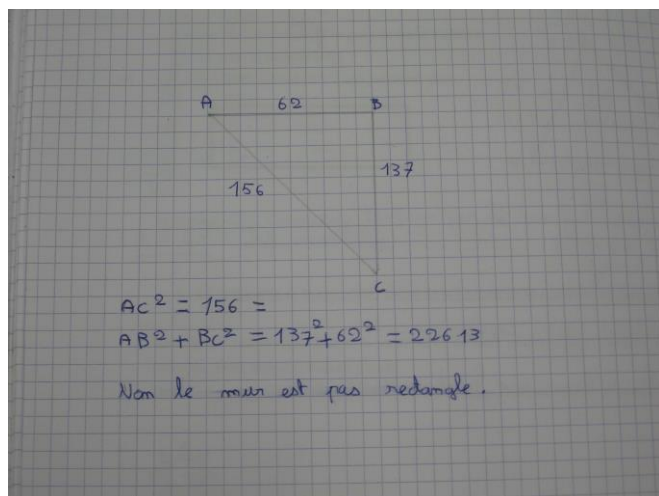 A 62 B
137
156
C
AC² = 156 =
AB² + BC² = 137² + 62² = 22613
Non le mur est pas rectangle.